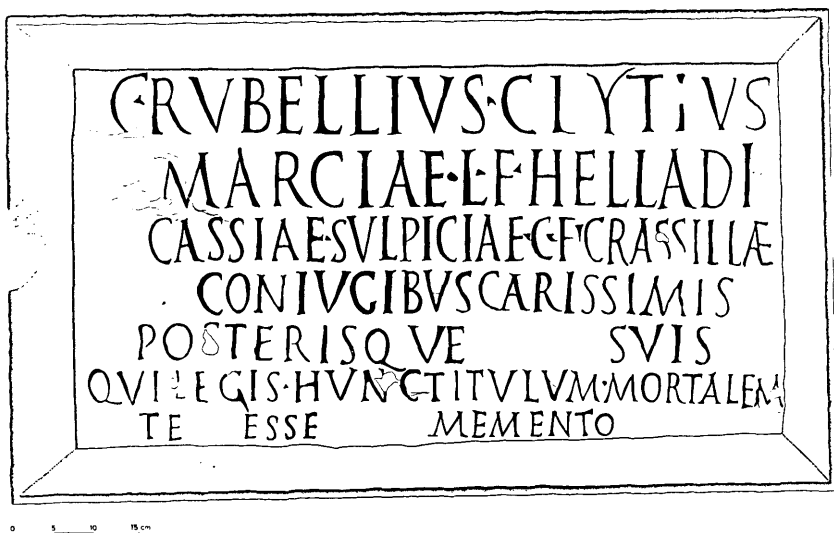 C·RVBELLIVS·CLYTIVS
MARCIAE·L·F·HELLADI
CASSIAE·SVLPICIAE·C·F·CRASSILLÆ
CONIVGIBVS CARISSIMIS
POSTERISQVE SVIS
QVI LEGIS·HVNC TITVLVM·MORTALEM
TE ESSE MEMENTO
0 5 10 15 cm